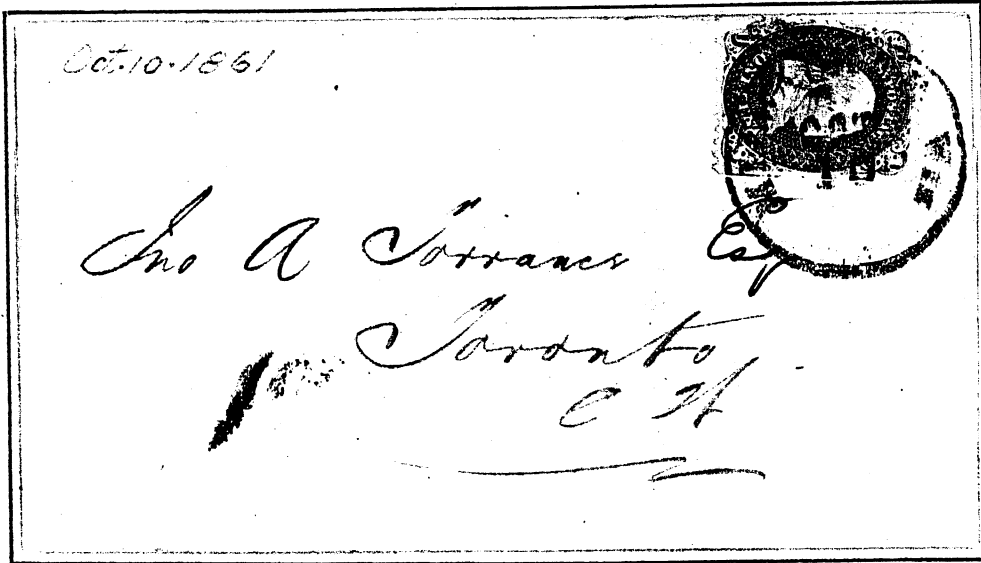 Oct. 10. 1861
Jno A Torrance Esq
Toronto
C W